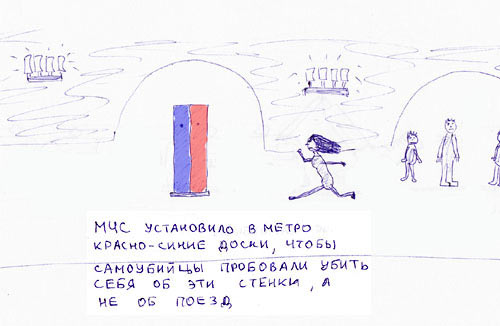 МЧС УСТАНОВИЛО В МЕТРО
КРАСНО-СИНИЕ ДОСКИ, ЧТОБЫ
САМОУБИЙЦЫ ПРОБОВАЛИ УБИТЬ
СЕБЯ ОБ ЭТИ СТЕНКИ, А
НЕ ОБ ПОЕЗД